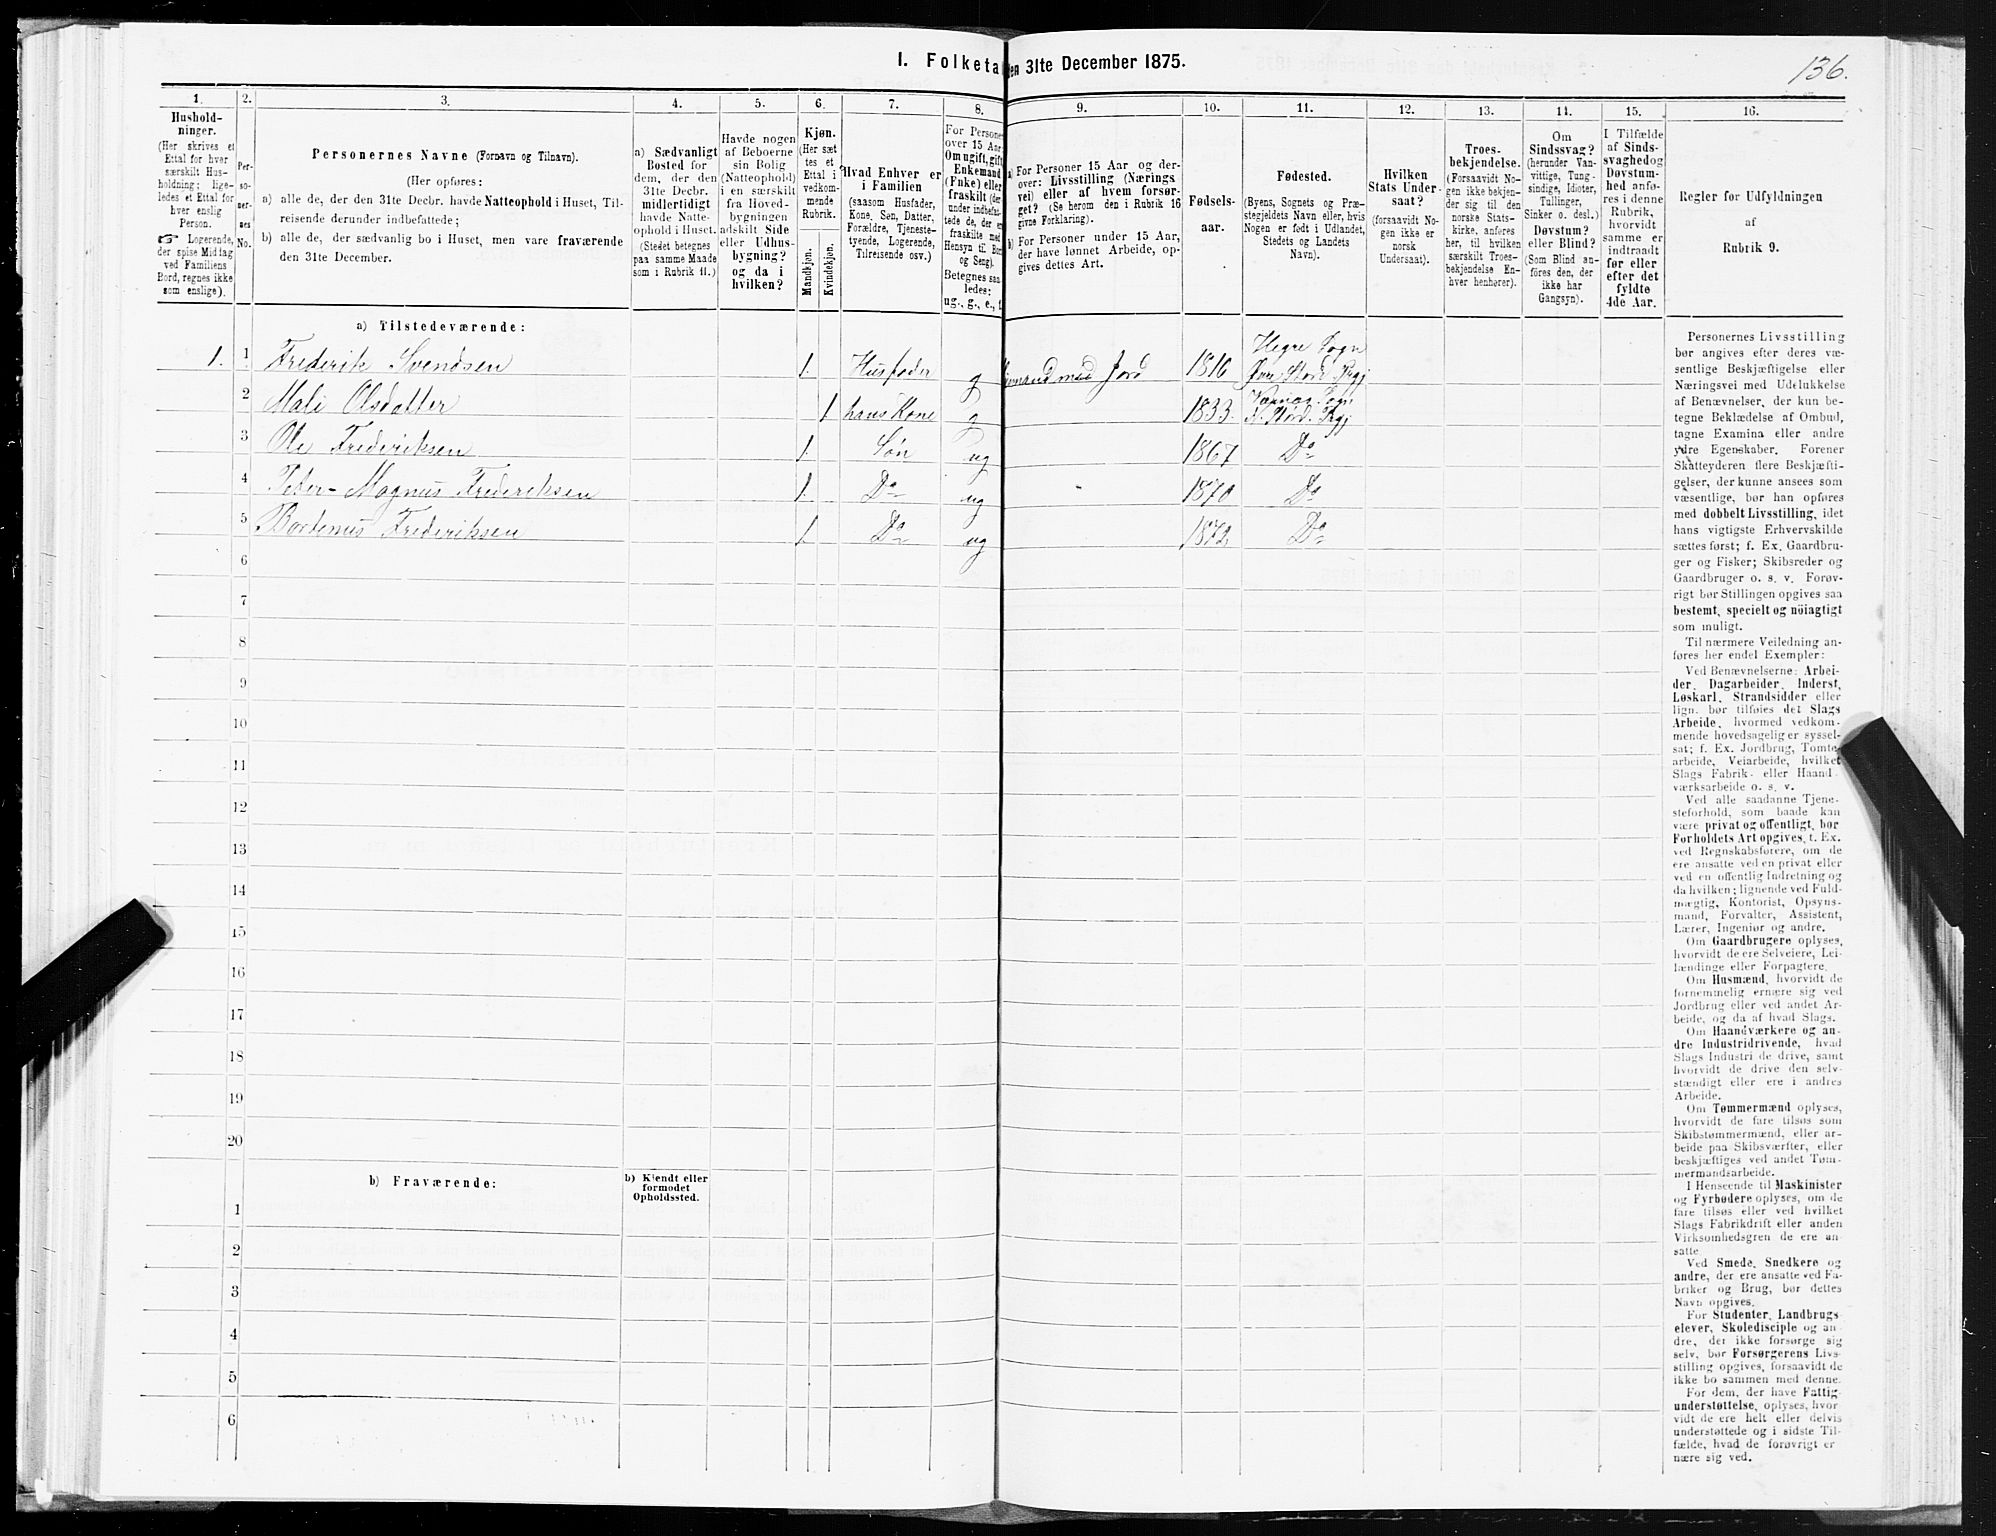 I. Folketa
den 31te December 1875.
136.
1.
2.
3.
4.
5.
6.
7.
8.
9.
10.
11.
12.
13.
14.
15.
16.
Hushold-
ninger.
(Her skrives et
Ettal for hver
særskilt Hus-
holdning; lige-
ledes et Ettal for
hver enslig
Person.
☞ Logerende,
der spise Middag
ved Familiens
Bord, regnes ikke
som enslige).
Per-
so-
ner-
nes
No.
Personernes Navne (Fornavn og Tilnavn).
(Her opføres:
a) alle de, der den 31te Decbr. havde Natteophold i Huset, Til-
reisende derunder indbefattede;
b) alle de, der sædvanlig bo i Huset, men vare fraværende
den 31te December.
a) Sædvanligt
Bosted for
dem, der den
31te Decbr.
midlertidigt
havde Natte-
ophold i Huset.
(Stedet betegnes
paa samme Maade
som i Rubrik 11.)
Havde nogen
af Beboerne
sin Bolig
(Natteophold)
i en særskilt
fra Hoved-
bygningen
adskilt Side
eller Udhus-
bygning?
og da i
hvilken?
Kjøn.
(Her sæt
tes et
Ettal i
vedkom-
mende
Rubrik.
Mandkjøn.
Kvindekjøn.
Hvad Enhver er
i Familien
(saasom Husfader,
Kone, Søn, Datter,
Forældre, Tjeneste-
tyende, Logerende,
Tilreisende osv.)
For Persone
over 15 Aar
Om ugift, gift
Enkemand
(Enke) eller
fraskilt (der
under indbefat-
tede de, der er
fraskilte med
Hensyn til Bor
og Seng).
Betegnes saa
ledes:
ug., g., e., f.
a) For Personer 15 Aar og der-
over: Livsstilling (Nærings
vei) eller af hvem forsør-
get? (Se herom den i Rubrik 16
givne Forklaring).
b) For Personer under 15 Aar,
der have lønnet Arbeide, op-
gives dettes Art.
Fødsels-
aar.
Fødested.
(Byens, Sognets og Præ-
stegjeldets Navn eller, hvis
Nogen er født i Udlandet,
Stedets og Landets
Navn).
Hvilken
Stats Under-
saat?
(forsaavidt No-
gen ikke er
norsk
Undersaat).
Troes-
bekjendelse.
(Forsaavidt No-
gen ikke bekjen-
der sig til den
norske Stats-
kirke, anføres
her, til hvilken
særskilt Troes-
bekjendelse En-
hver henhører).
Om
Sindssvag?
(herunder Van-
vittige, Tung-
sindige, Idioter,
Tullinger,
Sinker o. desl.)
Døvstum?
eller Blind?
(Som Blind an-
føres den, der
ikke har
Gangsyn).
I Tilfælde
af Sinds-
svaghedog
Døvstum-
hed anfø-
res i denne
Rubrik,
hvorvidt
samme er
indtraadt
før eller
efter det
fyldte
4de Aar.
Regler for Udfyldningen
af
Rubrik 9.
a) Tilstedeværende:
1. 1 Frederik Svendsen 1. Husfader g Husmand med Jord 1816 Hegre Sogn
Øvre Størd. Prgj
2 Mali Olsdatter 1 hans Kone g 1833. Sogn
N. Størd. Prgj
3 Ole Frederiksen 1. Søn ug 1867 Do
4 Peter-Magnus Frederiksen 1. Do ug 1870 Do
5 Bortenus Frederiksen 1. Do ug 1872 Do
6
7
8
9
10
11
12
13
14
15
16
17
18
19
20
b) Fraværende:
b) Kjendt eller
formodet
Opholdssted.
1
2
3
4
5
6
Personernes Livsstilling
bør angives efter deres væ-
sentlige Beskjæftigelse eller
Næringsvei med Udelukkelse
af Benævnelser, der kun be-
tegne Beklædelse af Ombud,
tagne Examina eller andre
ydre Egenskaber. Forener
Skatteyderen flere Beskjæfti-
gelser, der kunne ansees som
væsentlige, bør han opføres
med dobbelt Livsstilling, idet
hans vigtigste Erhvervskilde
sættes først; f. Ex. Gaardbru-
ger og Fisker; Skibsreder og
Gaardbruger o. s. v. Forøv-
rigt bør Stillingen opgives saa
bestemt, specielt og nöiagtigt
som muligt.
Til nærmere Veiledning an-
føres her endel Exempler:
Ved Benævnelserne: Arbei-
der, Dagarbeider, Inderst,
Løskarl, Strandsidder eller
lign. bør tilføies det Slags
Arbeide, hvormed vedkom-
mende hovedsagelig er syssel-
sat; f. Ex. Jordbrug, Tomte-
arbeide, Veiarbeide, hvilket
Slags Fabrik- eller Haand-
værksarbeide o. s. v.
Ved alle saadanne Tjene-
steforhold, som baade kan
være privat og offentligt, bør
Forholdets Art opgives, t. Ex.
ved Regnskabsførere, om de
ere ansatte ved en privat eller
ved en offentlig Indretning og
da hvilken; lignende ved Fuld-
mægtig, Kontorist, Opsyns-
mand, Forvalter, Assistent,
Lærer, Ingeniør og andre.
Om Gaardbrugere oplyses,
hvorvidt de ere Selveiere, Lei-
lændinge eller Forpagtere.
Om Husmænd, hvorvidt de
fornemmelig ernære sig ved
Jordbrug eller ved andet Ar-
beide, og da af hvad Slags.
Om Haandværkere og an-
dre Industridrivende, hvad
Slags Industri de drive, samt
hvorvidt de drive den selv-
stændigt eller ere i andres
Arbeide.
Om Tømmermænd oplyses,
hvorvidt de fare tilsøs som
Skibstømmermænd, eller ar-
beide paa Skibsværfter, eller
beskjæftiges ved andet Tøm-
mermandsarbeide.
I Henseende til Maskinister
og Fyrbødere oplyses, om de
fare tilsøs eller ved hvilket
Slags Fabrikdrift eller anden
Virksomhedsgren de ere an-
satte
Ved Smede, Snedkere og
andre, der ere ansatte ved Fa-
briker og Brug, bør dettes
Navn opgives.
For Studenter, Landbrugs-
elever, Skoledisciple og an-
dre, der ikke forsørge sig
selv, bør Forsørgerens Livs-
stilling opgives, forsaavidt de
ikke bo sammen med denne.
For dem, der have Fattig-
understøttelse, oplyses, hvor
vidt de ere helt eller delvis
understøttede og i sidste Til-
fælde, hvad de forøvrigt er
nære sig ved.